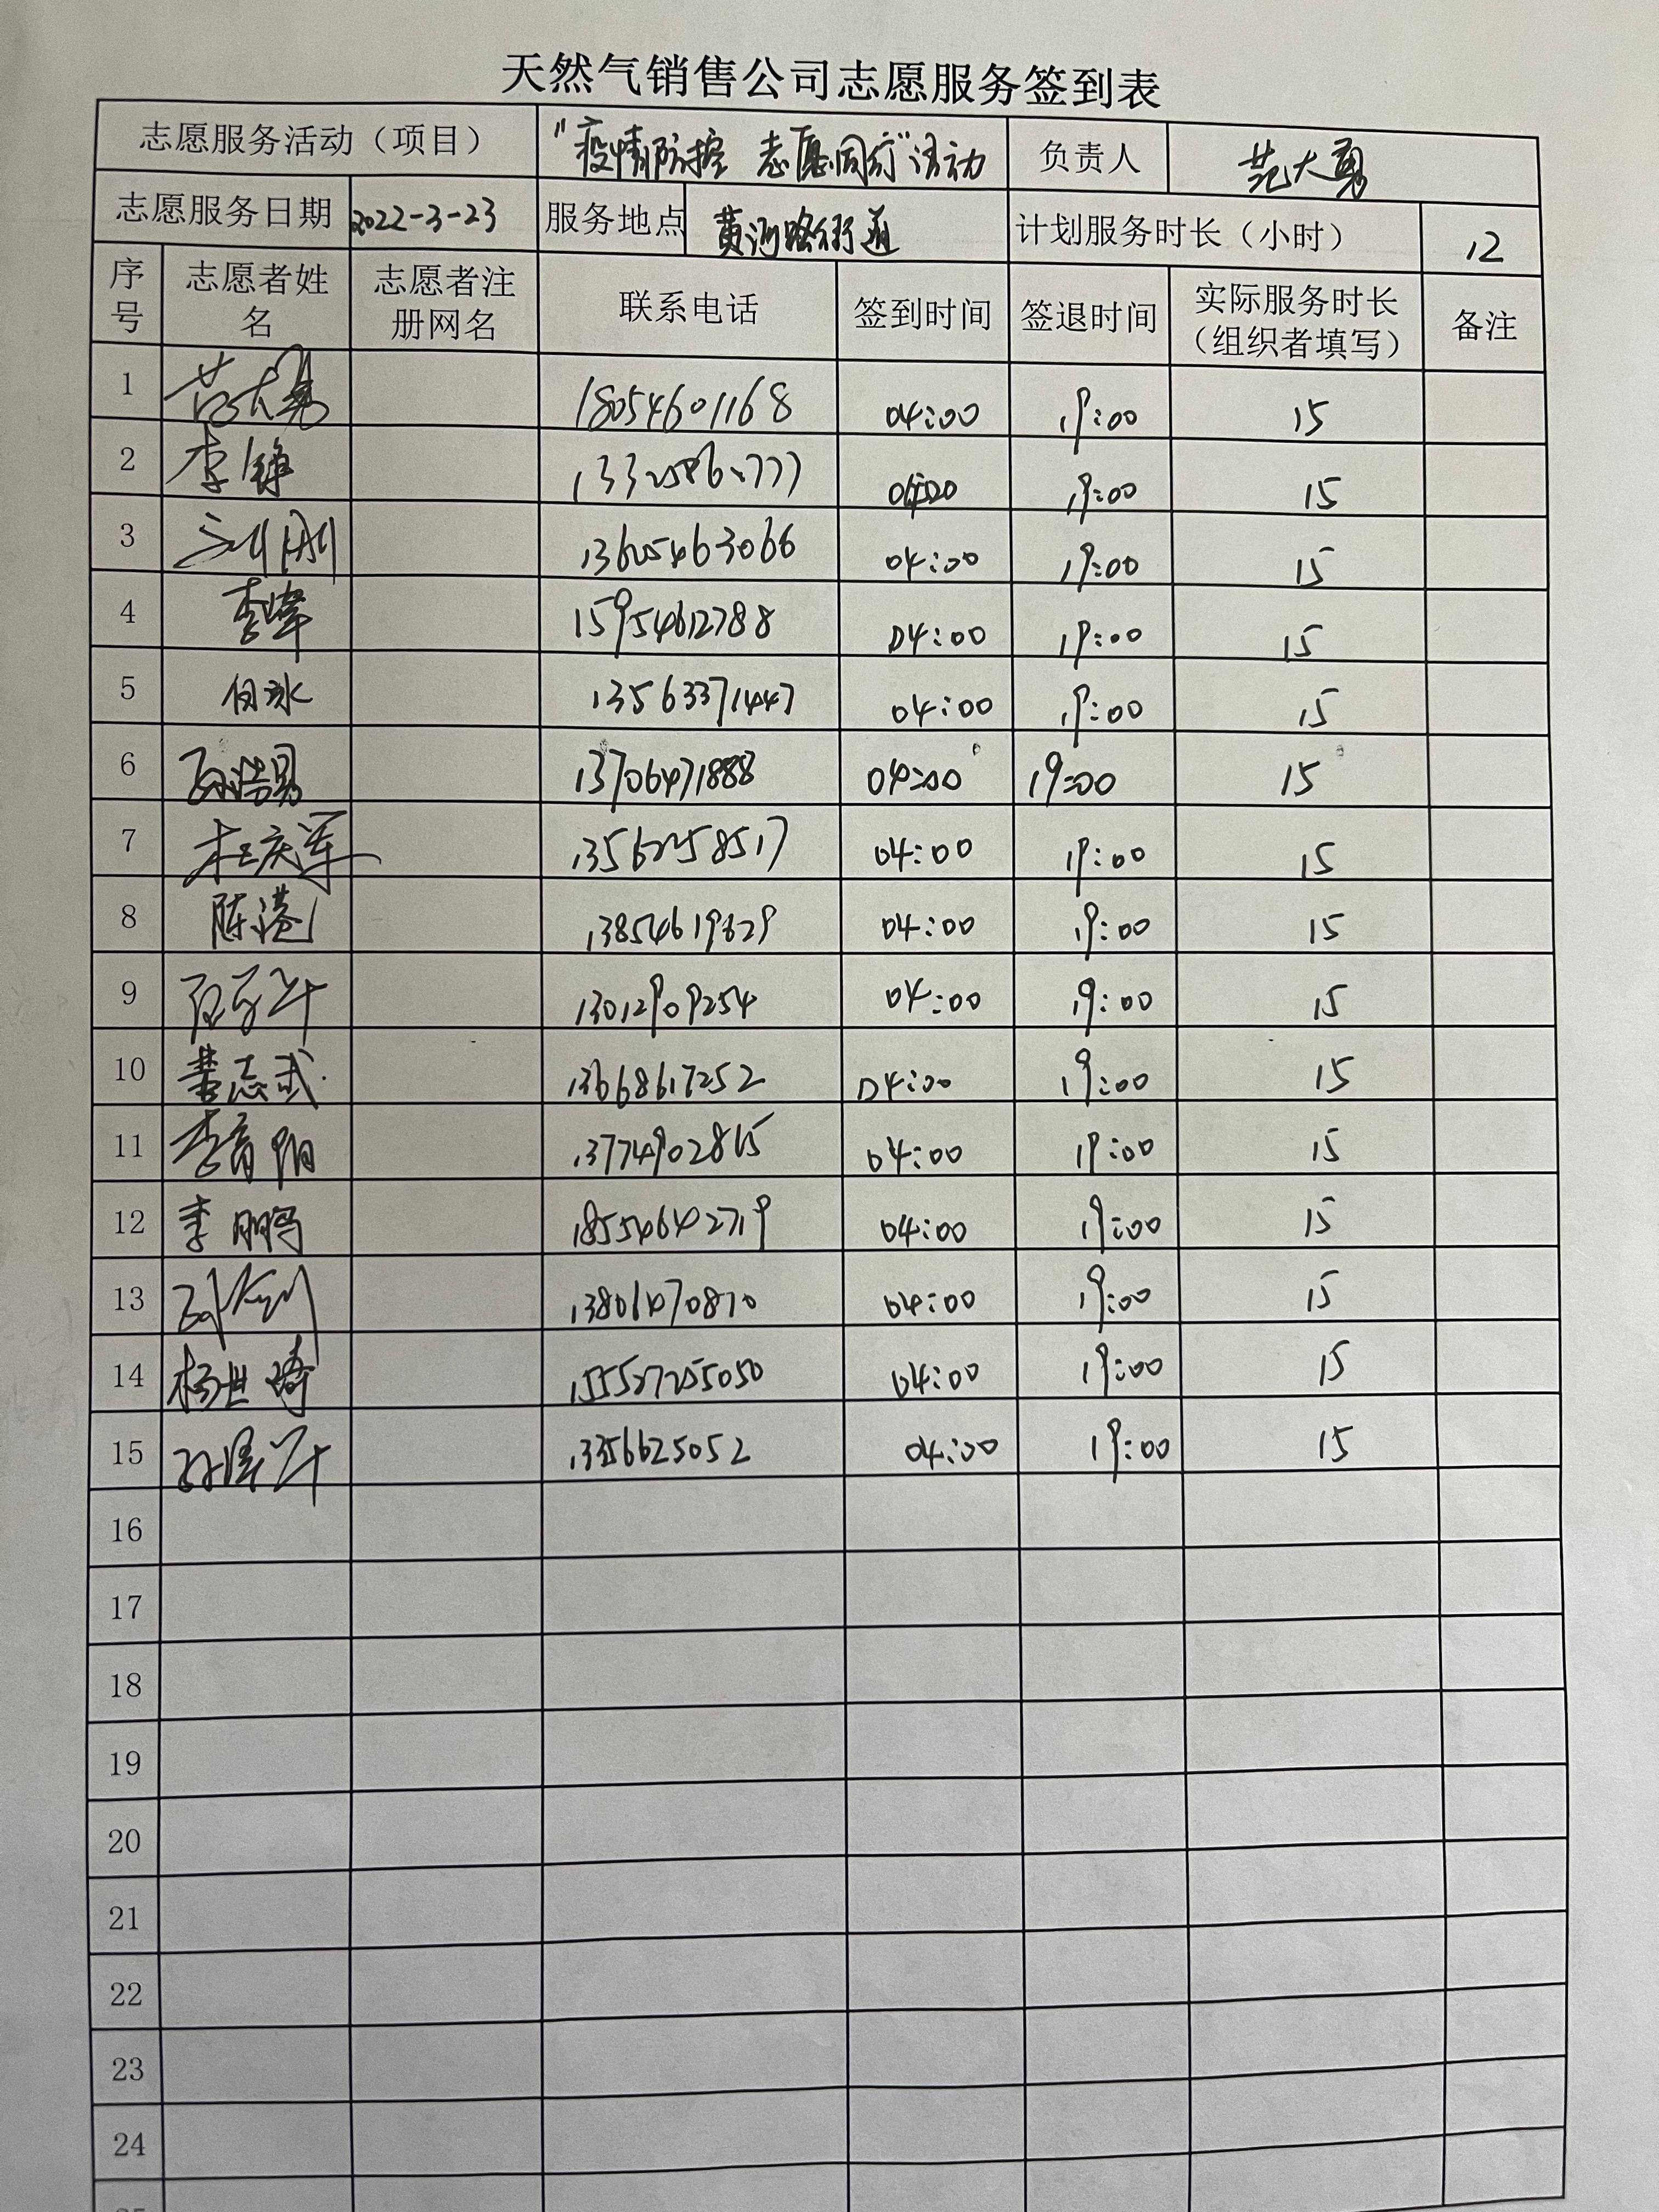 天然气销售公司志愿服务签到表
志愿服务活动（项目） "疫情防控 志愿同行"活动 负责人 范大勇
志愿服务日期 2022-3-23 服务地点 黄河路街道 计划服务时长（小时） 12
序号 志愿者姓名 志愿者注册网名 联系电话 签到时间 签退时间 实际服务时长（组织者填写） 备注
1 范大勇 18054601168 04:00 19:00 15
2 李锋 19:00 15
3 13605463066 04:00 19:00 15
4 李峰 15954612788 04:00 19:00 15
5 白冰 13563371447 04:00 19:00 15
6 孙浩男 13706471888 04:00 19:00 15
7 杜庆军 13562258517 04:00 19:00 15
8 陈港 04:00 19:00 15
9 13012909254 04:00 19:00 15
10 黄志武 13668617252 04:00 19:00 15
11 李育阳 04:00 19:00 15
12 李鹏 18554642719 04:00 19:00 15
13 13806470870 04:00 19:00 15
14 杨世琦 15552725050 04:00 19:00 15
15 04:00 19:00 15
16
17
18
19
20
21
22
23
24